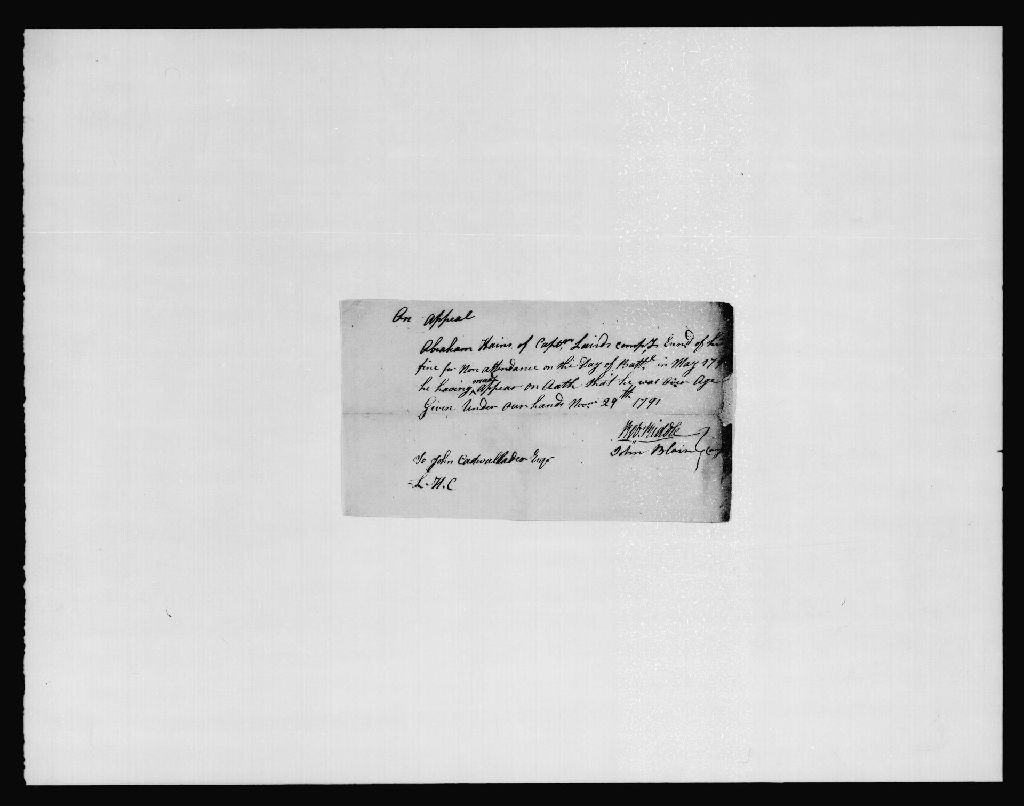 On Appeal
Abraham Hains of Captn Lairds compy Is Exnd of his
fine for Non attendance on the Day of Battl in May 179
he having made Appear on Oath that he was over Age
Given Under our hands Novr 29th 1791
Robt Riddle
John Blain
To John Cadwallader Esqr
L.H.C